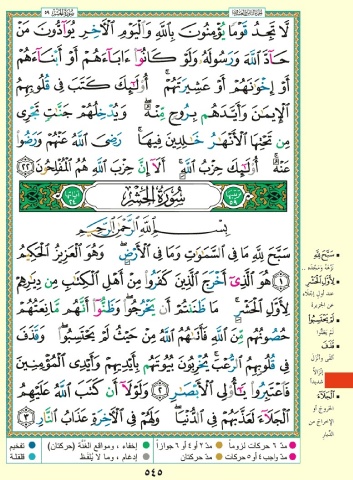 لَّا تَجِدُ قَوْمًا يُؤْمِنُونَ بِاللَّهِ وَالْيَوْمِ الْآخِرِ يُوَادُّونَ مَنْ
حَادَّ اللَّهَ وَرَسُولَهُ وَلَوْ كَانُوا ءَابَاءَهُمْ أَوْ أَبْنَاءَهُمْ
أَوْ إِخْوَٰنَهُمْ أَوْ عَشِيرَتَهُمْ ۚ أُولَٰئِكَ كَتَبَ فِي قُلُوبِهِمُ
الْإِيمَٰنَ وَأَيَّدَهُم بِرُوحٍ مِّنْهُ ۖ وَيُدْخِلُهُمْ جَنَّٰتٍ تَجْرِي
مِن تَحْتِهَا الْأَنْهَٰرُ خَٰلِدِينَ فِيهَا ۚ رَضِيَ اللَّهُ عَنْهُمْ وَرَضُوا
عَنْهُ ۚ أُولَٰئِكَ حِزْبُ اللَّهِ ۚ أَلَا إِنَّ حِزْبَ اللَّهِ هُمُ الْمُفْلِحُونَ ٢٢
سُورَةُ الْحَشْرِ
بِسْمِ اللَّهِ الرَّحْمَٰنِ الرَّحِيمِ
سَبَّحَ لِلَّهِ مَا فِي السَّمَٰوَٰتِ وَمَا فِي الْأَرْضِ ۖ وَهُوَ الْعَزِيزُ الْحَكِيمُ
١ هُوَ الَّذِي أَخْرَجَ الَّذِينَ كَفَرُوا مِنْ أَهْلِ الْكِتَٰبِ مِن دِيَٰرِهِمْ
لِأَوَّلِ الْحَشْرِ ۚ مَا ظَنَنتُمْ أَن يَخْرُجُوا ۖ وَظَنُّوا أَنَّهُم مَّانِعَتُهُمْ
حُصُونُهُم مِّنَ اللَّهِ فَأَتَىٰهُمُ اللَّهُ مِنْ حَيْثُ لَمْ يَحْتَسِبُوا ۖ وَقَذَفَ
فِي قُلُوبِهِمُ الرُّعْبَ ۚ يُخْرِبُونَ بُيُوتَهُم بِأَيْدِيهِمْ وَأَيْدِي الْمُؤْمِنِينَ
فَاعْتَبِرُوا يَٰأُولِي الْأَبْصَٰرِ ٢ وَلَوْلَا أَن كَتَبَ اللَّهُ عَلَيْهِمُ
الْجَلَاءَ لَعَذَّبَهُمْ فِي الدُّنْيَا ۖ وَلَهُمْ فِي الْآخِرَةِ عَذَابُ النَّارِ ٣
سَبَّحَ لِلَّهِ
لِأَوَّلِ الْحَشْرِ
لَمْ يَحْتَسِبُوا
لَمْ يَظُنُّوا
وَقَذَفَ
الْجَلَاءَ
الخروج أو
الإخراج من
مدّ ٦ حركات لزوماً
مدّ ٢ أو ٤ أو ٦ جوازاً
إخفاء، ومواقع الغُنَّة (حركتان)
تفخيم
مدّ واجب ٤ أو ٥ حركات
مدّ حركتان
إدغام، وما لا يُلفَظ
قلقلة
٥٤٥